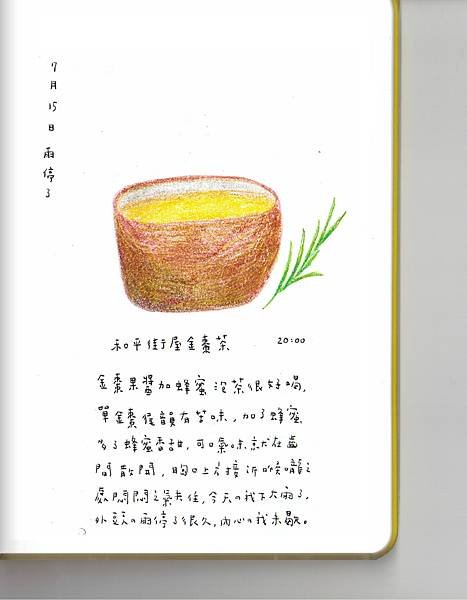 7月15日 雨停了
和平街屋金棗茶 20:00
金棗果醬加蜂蜜泡茶很好喝,
單金棗後韻有苦味,加了蜂蜜
多了蜂蜜香甜,可口氣味就在
間散開,胸口上方接近喉嚨之
處悶悶之氣共住,今天の我下大雨了,
外頭の雨停了很久,內心の我未歇。